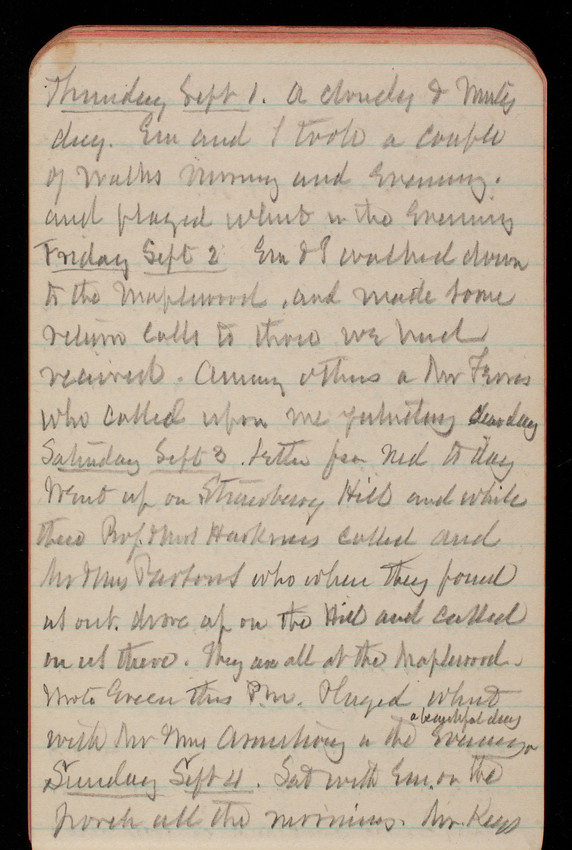 Thursday Sept 1. A cloudy & misty
day. Em and I took a couple
of walks morning and Evening.
and played whist in the Evening
Friday Sept 2 Em & I walked down
to the Maplewood, and made some
return calls to those we had
recieved. Among others a Mr
who called upon me yesterday clear day
Saturday Sept 3. Letter from Ned to day
Went up on Strawberry Hill and while
there Prof. & Mrs Harkness called and
Mr & Mrs Parsons who when they found
us out. drove up on the Hill and called
on us there. They are all at the Maplewood.
Wrote Green this P.M. Played whist
a beautiful day
with Mr & Mrs Armstrong in the Evening
Sunday Sept 4. Sat with Em. on the
porch all the morning. Mr. Keys